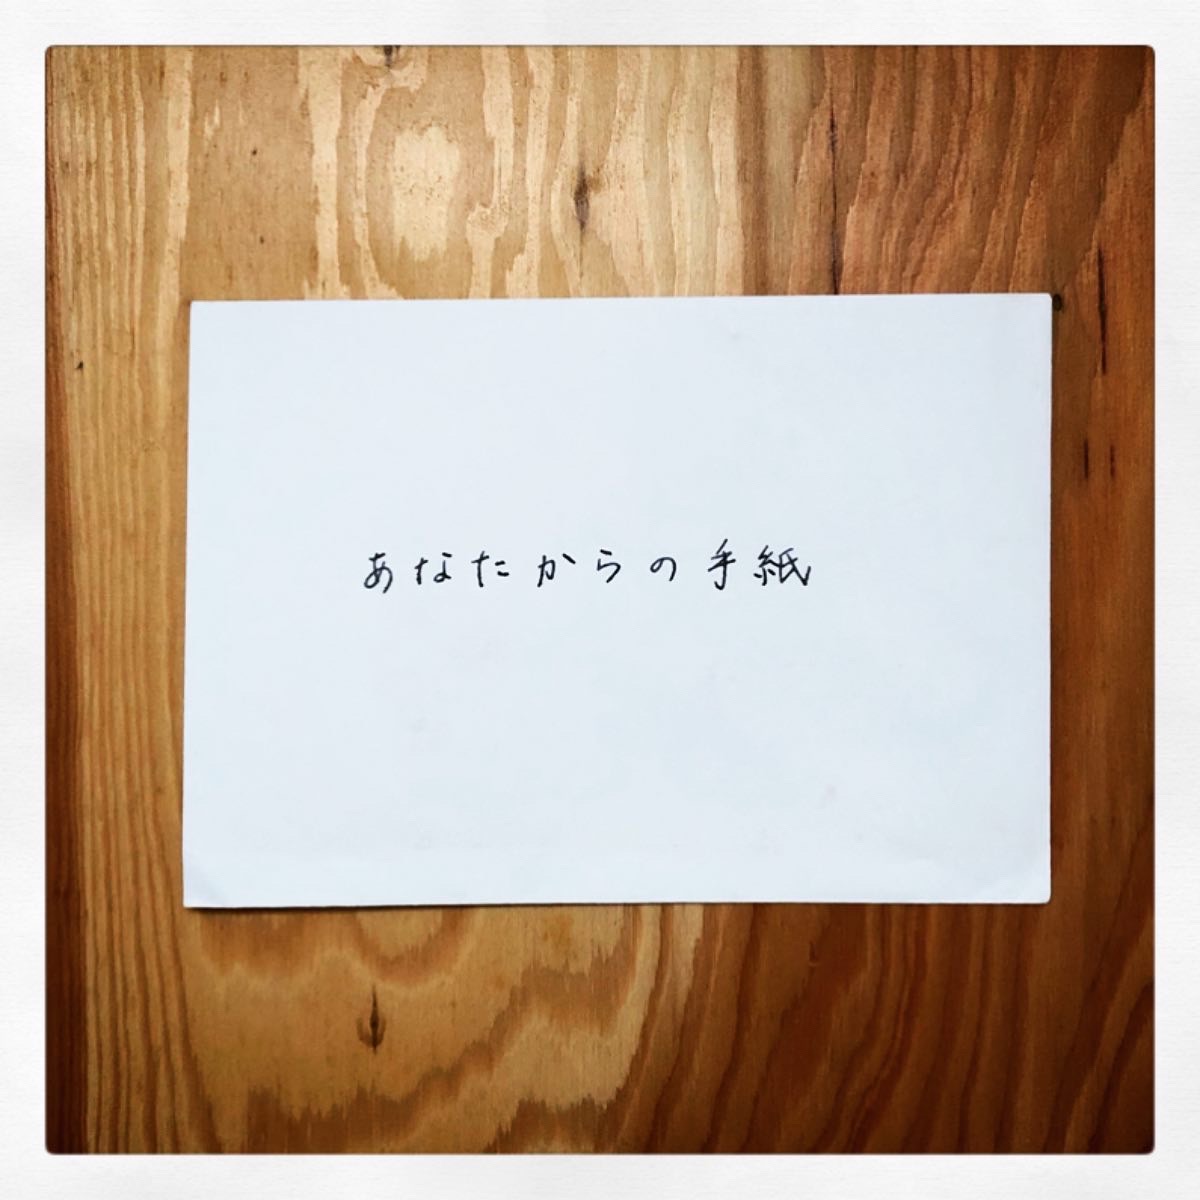 あなたからの手紙